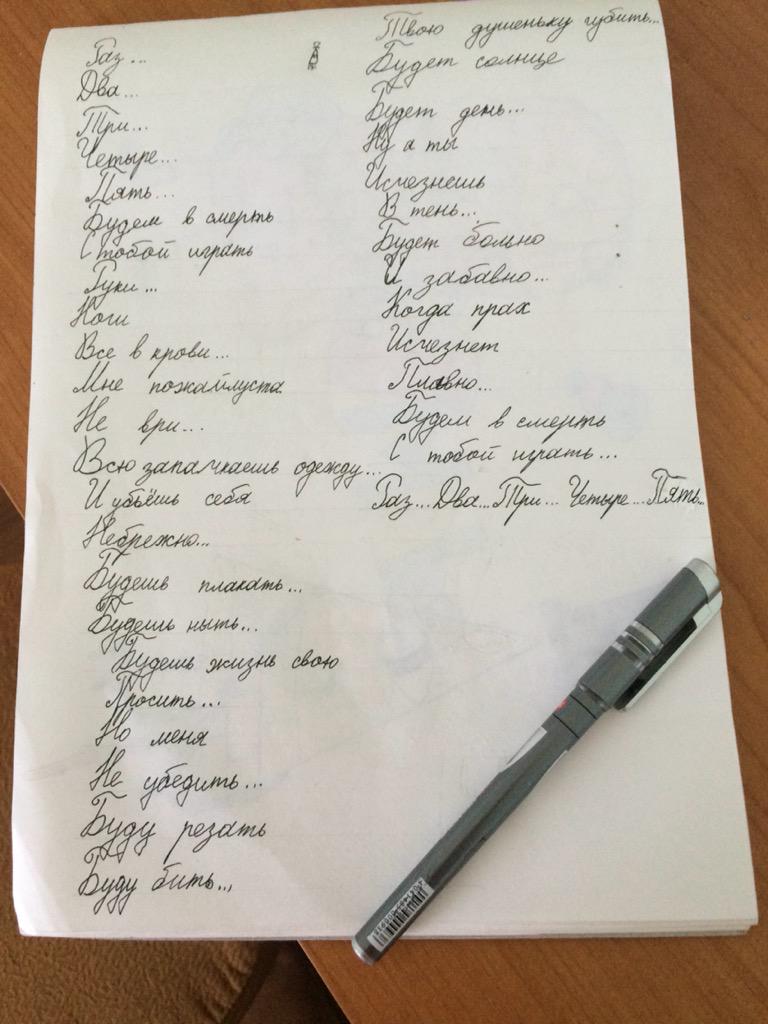 Раз...
Два...
Три...
Четыре...
Пять...
Будем в смерть
С тобой играть
Руки...
Ноги
Все в крови...
Мне пожайлуста
Не ври...
Всю запачкаешь одежду...
И убьёшь себя
Небрежно...
Будешь плакать...
Будешь ныть...
Будешь жизнь свою
Просить...
Но меня
Не убедить...
Буду резать
Буду бить...
Твою душеньку губить...
Будет солнце
Будет день...
Ну а ты
Исчезнешь
В тень...
Будет больно
И забавно...
Когда прах
Исчезнет
Плавно...
Будем в смерть
С тобой играть...
Раз... Два... Три... Четыре... Пять...